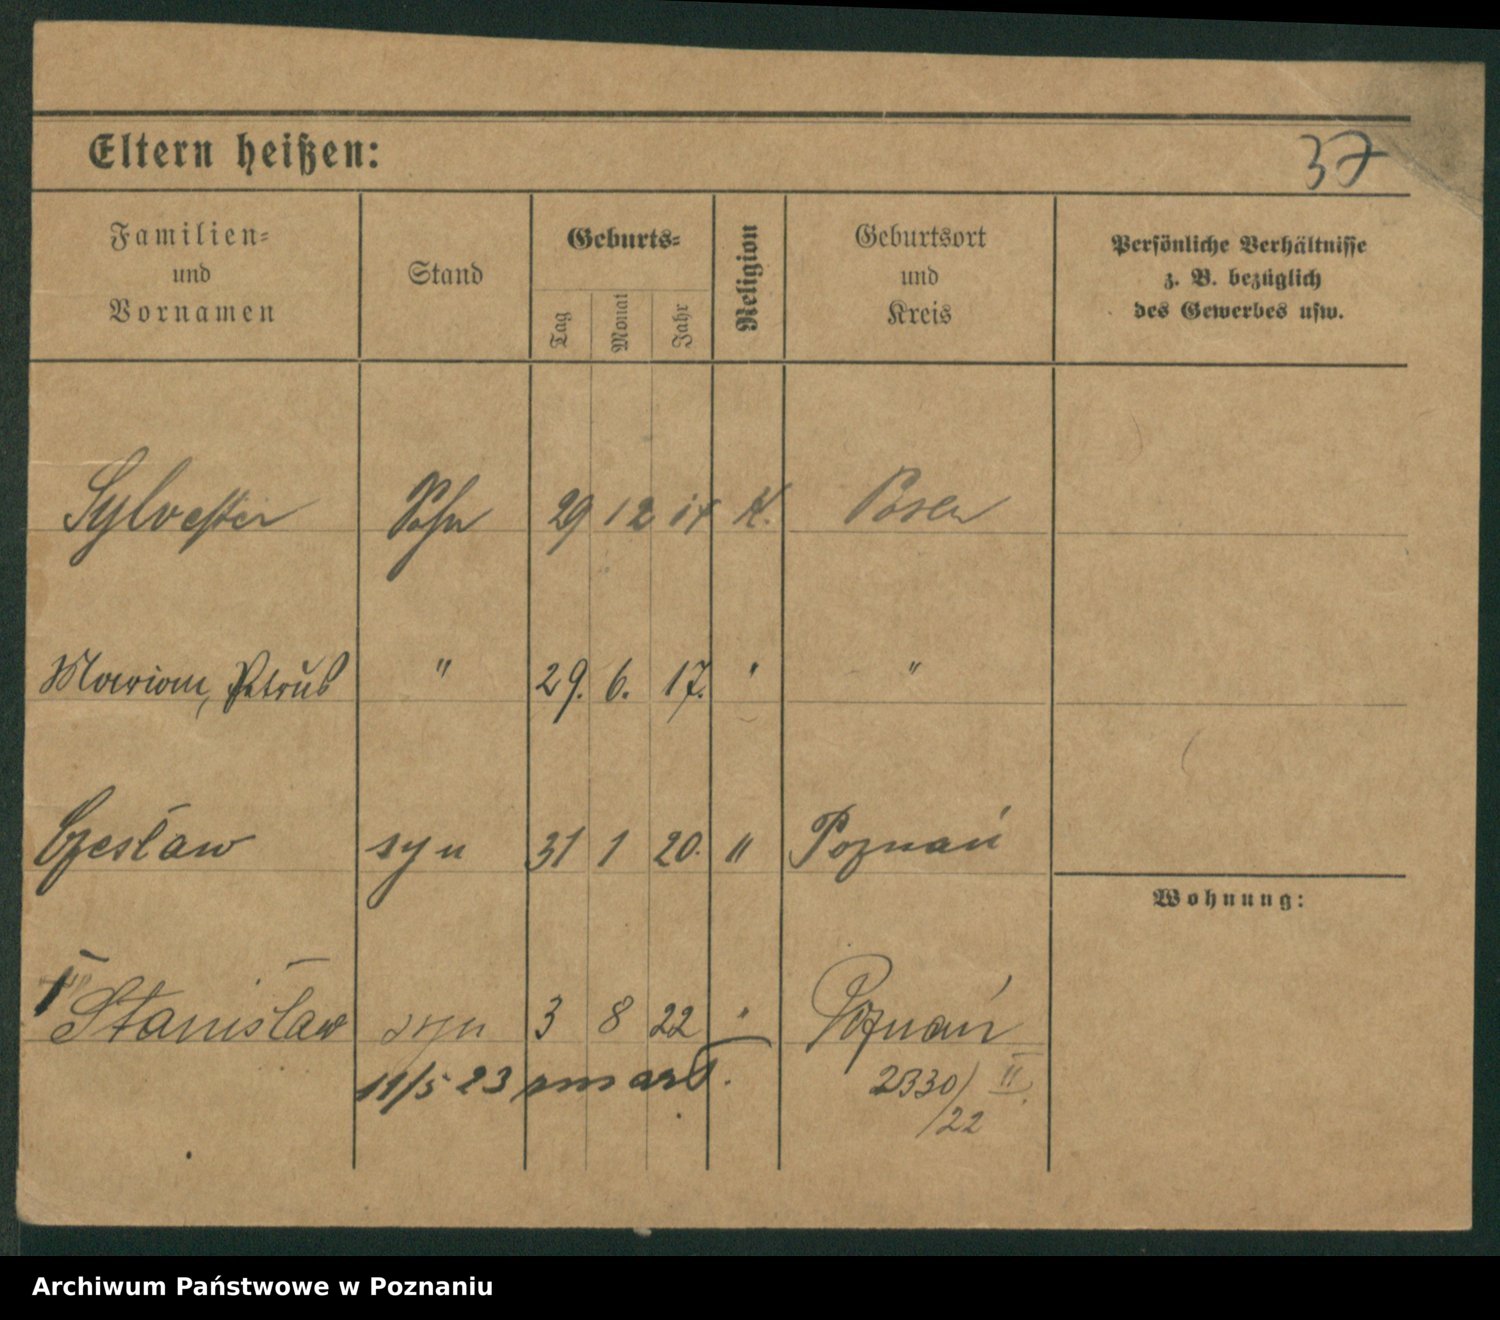 Eltern heißen:
37
Familien-
und
Vornamen
Stand
Geburts-
Tag
Monat
Jahr
Religion
Geburtsort
und
Kreis
Persönliche Verhältnisse
z. B. bezüglich
des Gewerbes usw.
Sylvester Sohn 29 12 14 K. Posen
Marian, Petrus " 29. 6. 17. " "
Czesław syn 31 1 20. " Poznań
Wohnung:
Stanisław syn 3 8 22 " Poznań
19/5 23 zmarł. 2330/ II.
/22
Archiwum Państwowe w Poznaniu